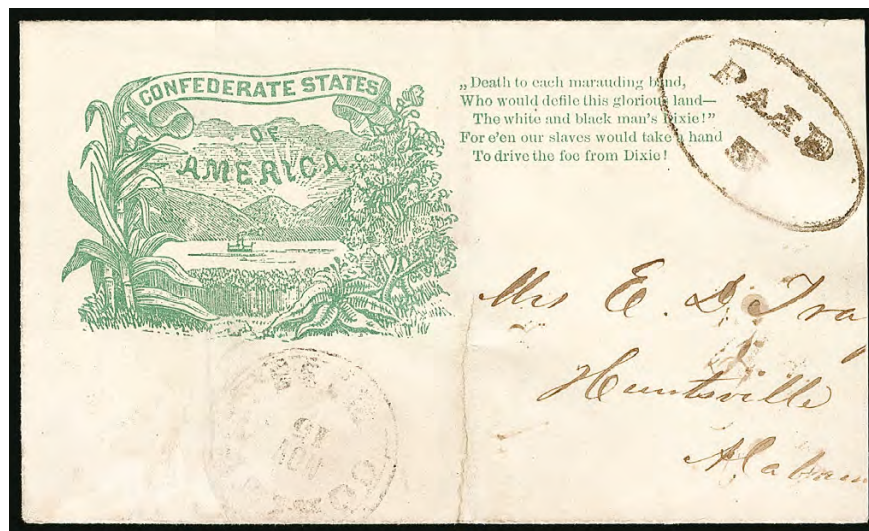 CONFEDERATE STATES
OF
AMERICA
„Death to each marauding band,
Who would defile this glorious land—
The white and black man's Dixie!"
For e'en our slaves would take a hand
To drive the foe from Dixie!
PAID
5
Mrs E. D. Tra
Huntsville
Alabam
NOV